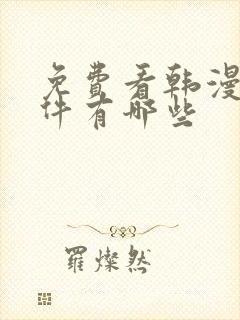 免费看韩漫
件有哪些
羅燦然